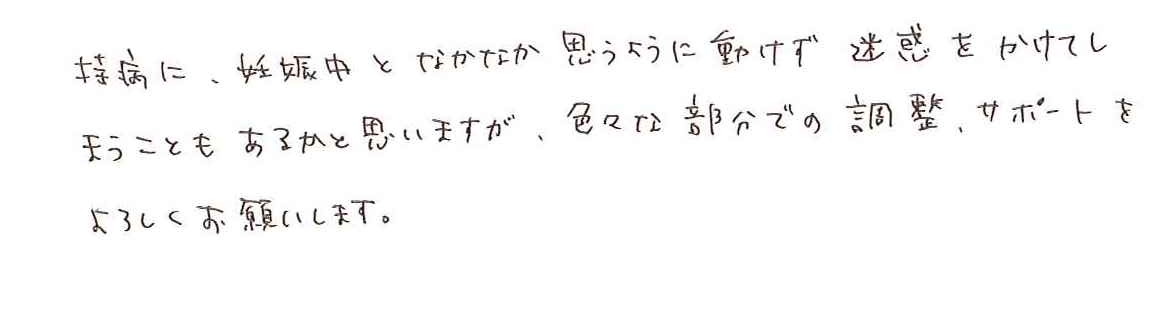 持病に、妊娠中となかなか思うように動けず迷惑をかけてし
まうこともあるかと思いますが、色々な部分での調整、サポートを
よろしくお願いします。